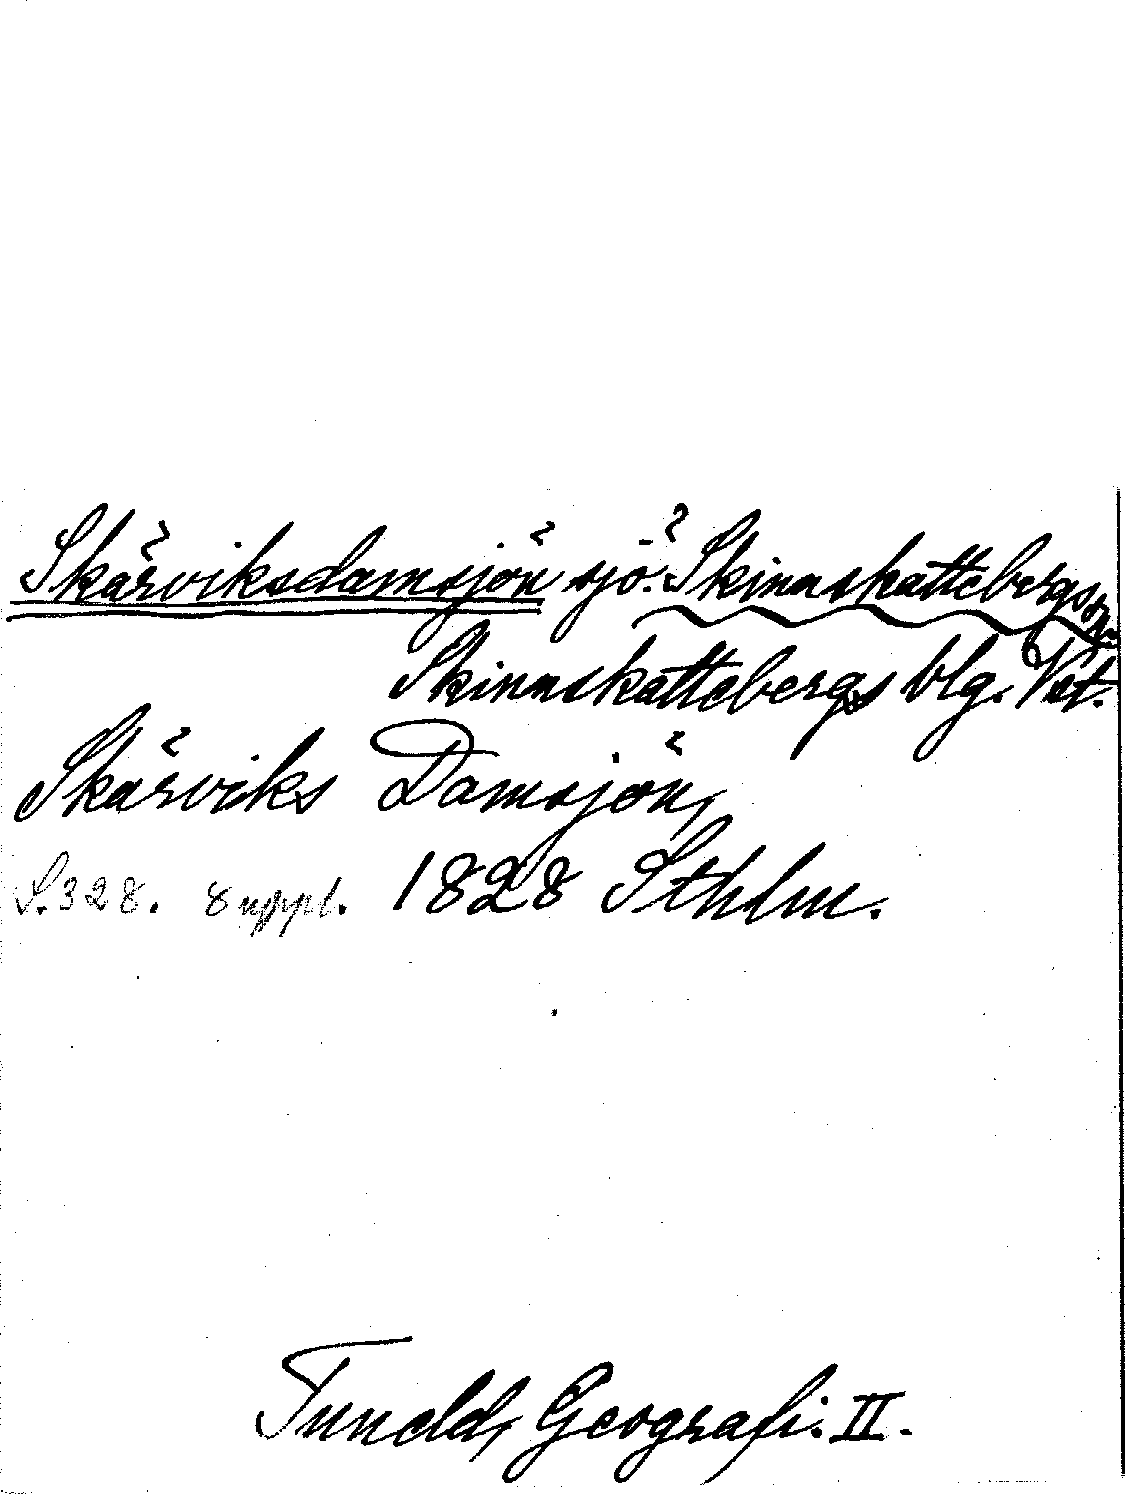 Skärviksdamsjön sjö. Skinnskattebergs sn.
Skinnskattebergs blg. Vst.
Skärviks Damsjön,
S. 328. 8 uppl. 1828 Sthlm.
Tuneld, Geografi. II.